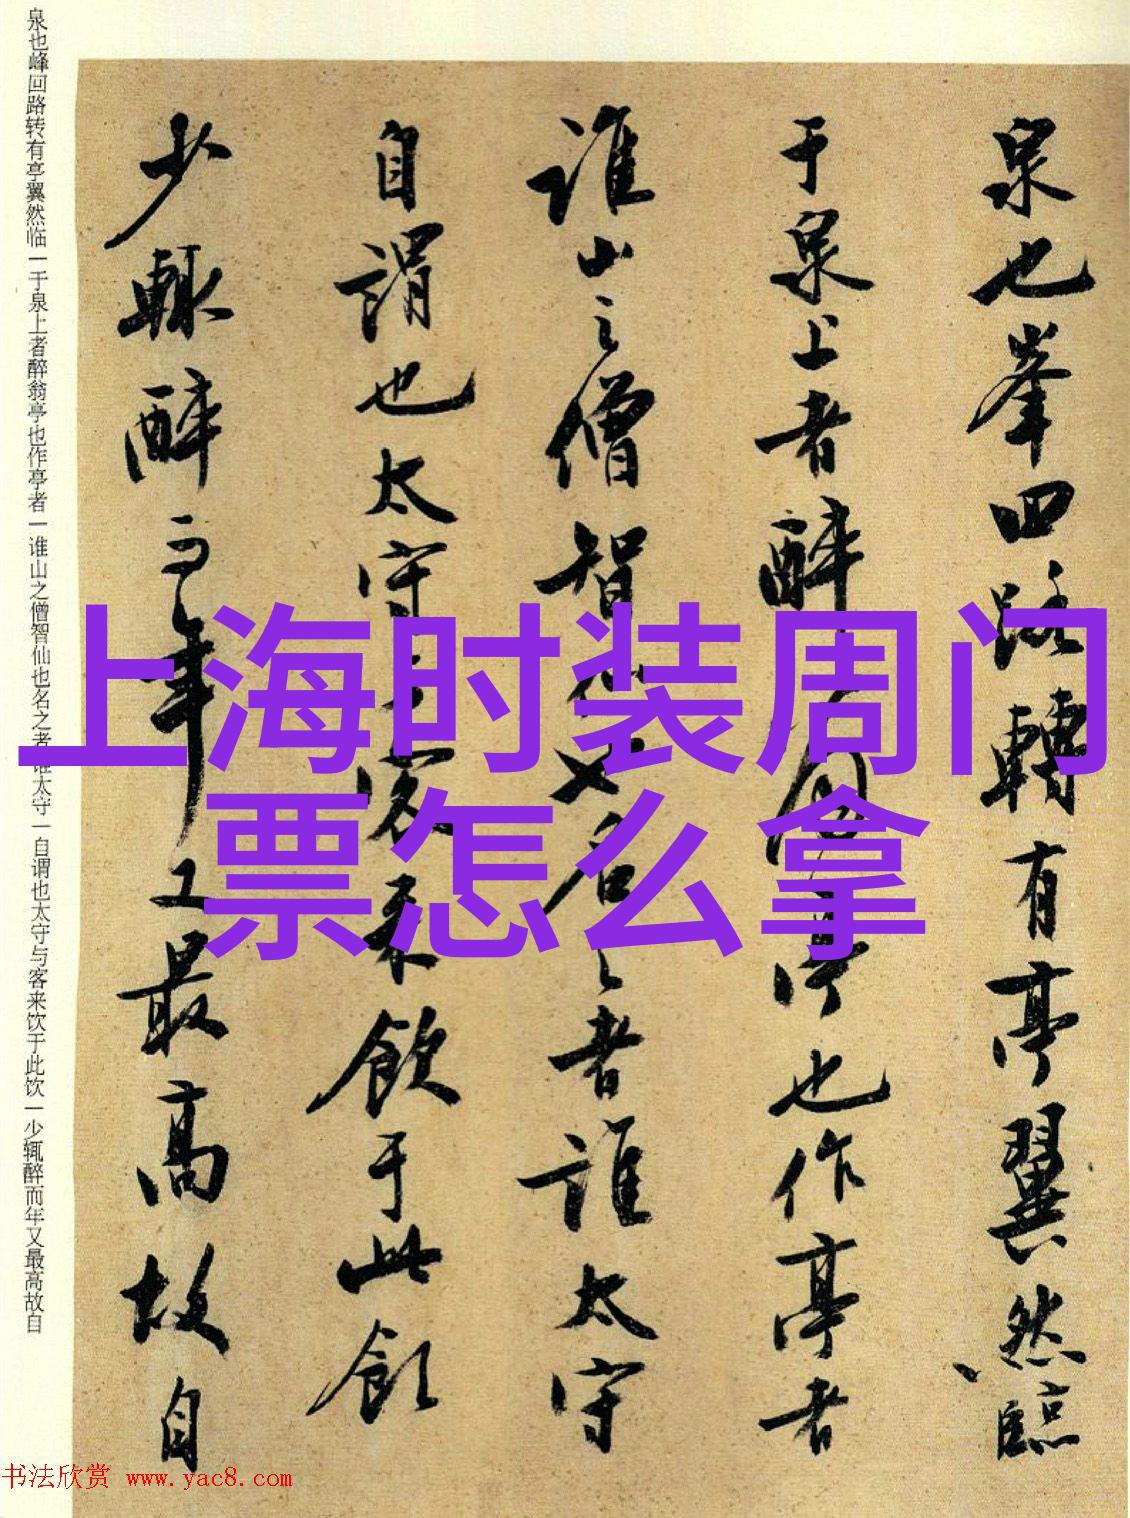 泉也峰回路转有亭翼然临一于泉上者醉翁亭也作亭者一谁山之僧智仙也名之者谁太守一自谓也太守与客来饮于此饮一少辄醉而年又最高故自
泉也峯回路轉有亭翼然臨
于泉上者醉翁亭也作亭者
誰山之僧智僊也名之者誰太守
自謂也太守与客来飲于此飲
少輒醉而年又最高故自
上海时装周门
票怎么拿
书法欣赏 www.yac8.com